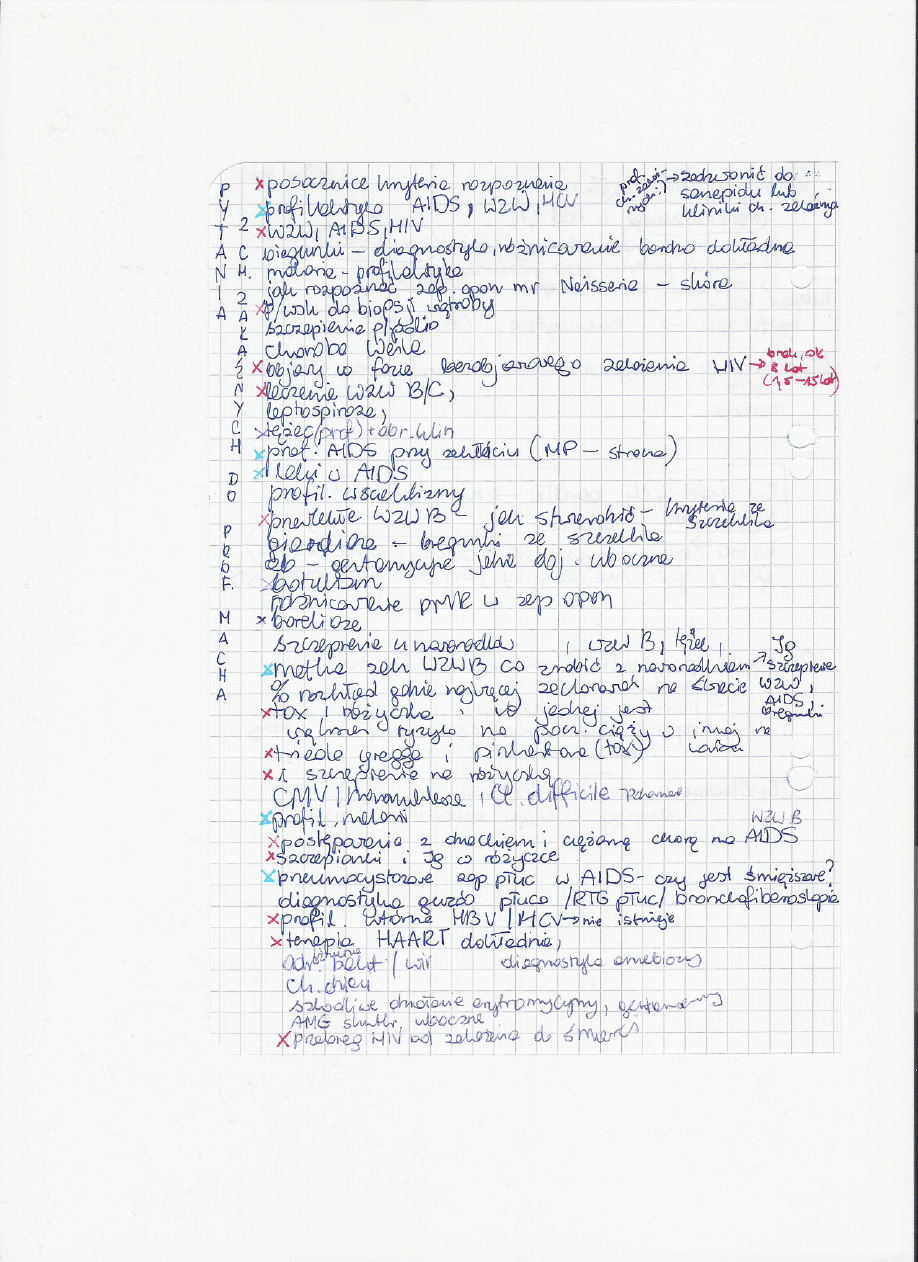 PYTANIA Z CH. ZAKAŹNYCH DO PROF. MACHA
× posocznice kryteria rozpoznania
prof. ch. zakaź → zadzwonić do sanepidu lub kliniki ch. zakaźnej
× profilaktyka AIDS, WZW, HCV
× WZW, AIDS, HIV
biegunki – diagnostyka, różnicowanie bardzo dokładne
malaria – profilaktyka
jak rozpoznać zap. opon mr Neisseria – skóra
× p/wsk do biopsji wątroby
szczepienie p/polio
choroba Weila
× objawy w fazie bezobjawowego zakażenia HIV → brak, ok 8 lat (1,5–15 lat)
× leczenie WZW B/C,
leptospiroza,
× tężec (prof) + obr. klin
× prof. AIDS przy zakłuciu (MP – strona)
× leki w AIDS
profil. wścieklizny
× przewlekłe WZW B – jak stwierdzić – kryteria ze Szczeklika
giardioza – biegunki ze szczeklika
ab – gentamycyna jakie dział. uboczne
× botulizm
różnicowanie pmr w zap opon
× borelioza
szczepienie u noworodka, WZW B, tężec,
× matka zak WZWB co zrobić z noworodkiem → Ig szczepienie
% rozkład gdzie najwięcej zachorowań na świecie WZW, AIDS, biegunki
× tox i różyczka, w jednej jest
większe ryzyko na pocz. ciąży w innej na końcu
× triada gregga i pinkertona (tox)
× i szczepienie na różyczkę
CMV / mononukleoza, Cl. difficile
× profil. malarii
× postępowanie z dzieckiem i ciężarną chorą na AIDS WZW B
× szczepionki i Ig w różyczce
× pneumocystozowe zap płuc w AIDS – czy jest śmiąższowe?
diagnostyka guzów płuca / RTG płuc / bronchofiberoskopia
× profil. wtórna HBV / HCV → nie istnieje
× terapia HAART dokładnie,
bakt / wir diagnostyka amebiozy
szkodliwe działanie erytromycyny, gentamycyny
AMG skutki uboczne
× przebieg HIV od zakażenia do śmierci